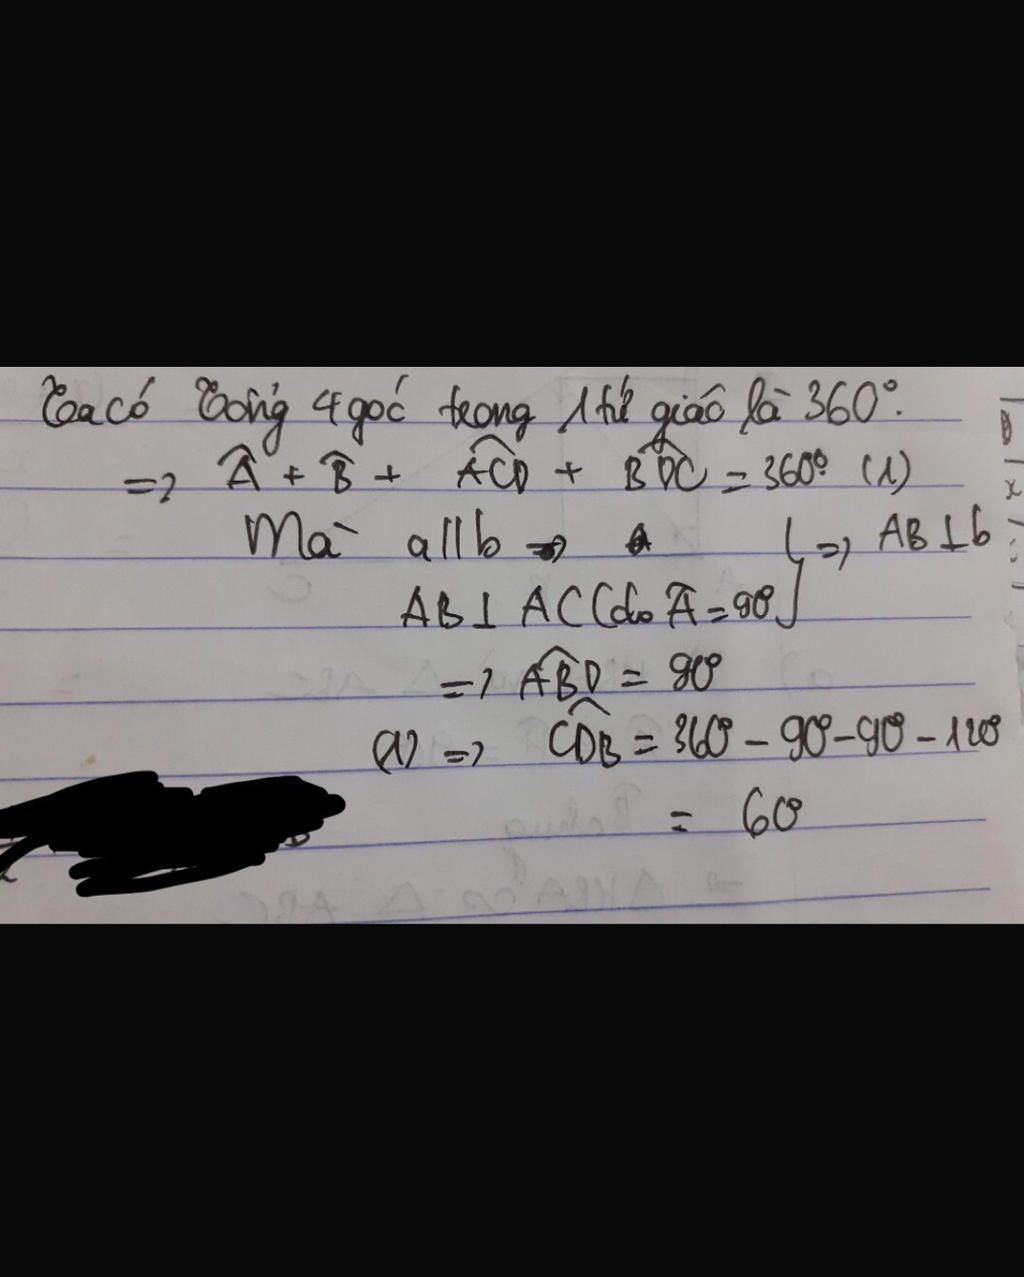 Ta có Tổng 4 góc trong 1 tứ giác là 360°.
=> Â + B̂ + ACD̂ + BDĈ = 360° (1)
Mà a // b => } => AB ⊥ b
AB ⊥ AC (do Â = 90°
=> ABD̂ = 90°
(1) => CDB̂ = 360° - 90° - 90° - 120°
= 60°